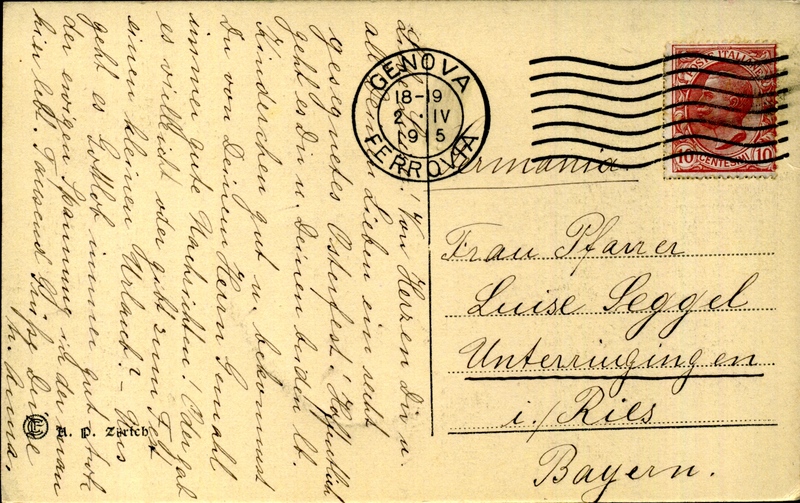 Liebe Luise! Von Herzen Dir u.
all Deinen Lieben ein recht
gesegnetes Osterfest! Hoffentlich
geht es Dir u. Deinen beiden lb.
Kinderchen gut u. bekommst
Du von Deinem Herrn Gemahl
immer gute Nachrichten! Oder gab
es vielleicht oder gibt zum Fest
einen kleinen Urlaub? – Uns
geht es Gottlob immer gut trotz
der ewigen Spannung in der man
hier lebt. Tausend Grüße Deine
Anna.
GENOVA
18-19
2 · IV
9 5
FERROVIA
POSTE ITALIANE
10 CENTESIMI 10
Germania.
Frau Pfarrer
Luise Seggel
Unterringingen
i./Ries
Bayern.
H. P. Zürich